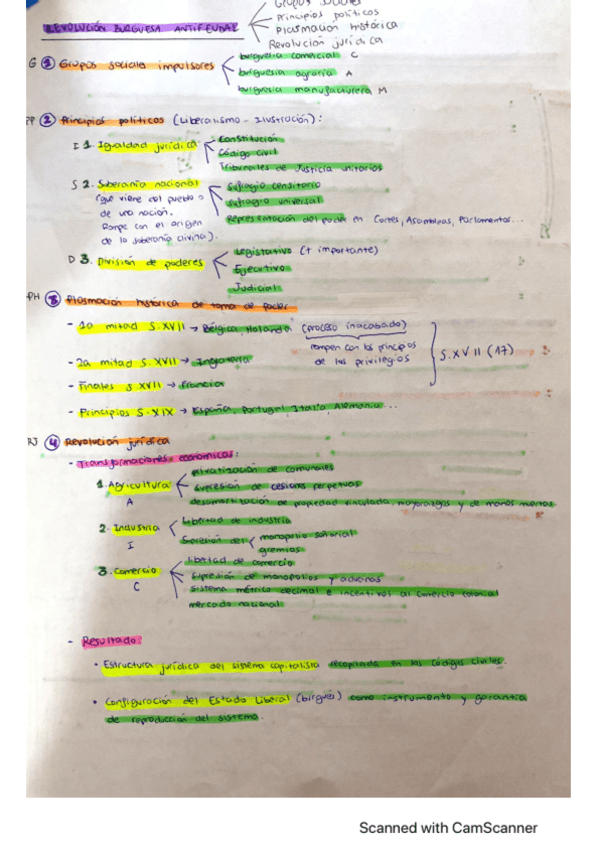 Grupos sociales
Principios políticos
REVOLUCIÓN BURGUESA ANTIFEUDAL
Plasmación histórica
Revolución jurídica
burguesia comercial C
G ① Grupos sociales impulsores
burguesia agraria A
burguesia manufacturera M
PP ② Principios políticos (Liberalismo - Ilustración):
Constitución
I 1. Igualdad jurídica
Código Civil
Tribunales de Justicia unitarios
S 2. Soberanía nacional
Sufragio censitario
(que viene del pueblo o
sufragio universal
de una nación.
Representación del poder en Cortes, Asambleas, Parlamentos...
Rompe con el origen
de la soberanía divina).
Legislativo (+ importante)
D 3. División de poderes
Ejecutivo
Judicial
PH ③ Plasmación histórica de toma de poder
- 1a mitad S.XVII → Bélgica, Holanda (proceso inacabado)
rompen con los principios
de los privilegios
S.XVII (17)
- 2a mitad S.XVII → Inglaterra
- Finales S XVII → Francia
- Principios S.XIX → España, Portugal, Italia, Alemania...
RJ ④ Revolución jurídica
- Transformaciones económicas:
privatización de comunales
1. Agricultura
supresión de cesiones perpetuas
A
desamortización de propiedad vinculada, mayorazgos y de manos muertas
Libertad de industria
2. Industria
Supresión del
monopolio señorial
I
gremios
libertad de comercio
3. Comercio
supresión de monopolios y aduanas
C
sistema métrico decimal e incentivos al comercio colonial
mercado nacional
- Resultado:
• Estructura jurídica del sistema capitalista recopilada en los códigos civiles.
• Configuración del Estado Liberal (burgués) como instrumento y garantía
de reproducción del sistema.
Scanned with CamScanner